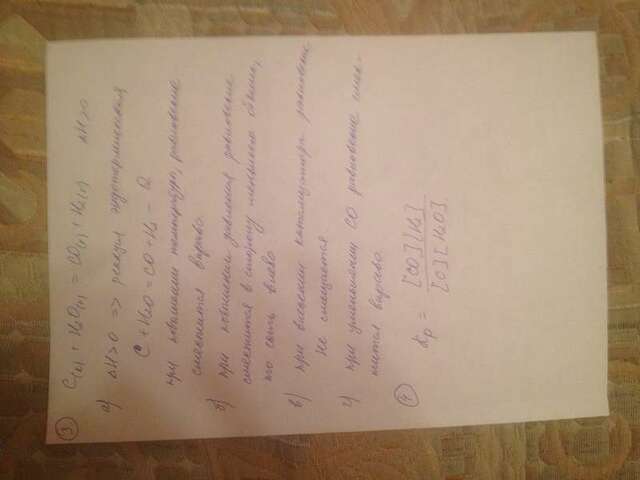 ③ C(к) + H₂O(г) = CO(г) + H₂(г) ΔH>0
а) ΔH>0 => реакция эндотермическая,
C + H₂O = CO + H₂ - Q
при повышении температуры, равновесие
сместится вправо.
б) при повышении давления равновесие
сместится в сторону меньшего объема,
то есть влево.
в) при внесении катализатора равновесие
не смещается.
г) при уменьшении CO равновесие смес-
тится вправо.
④ Kр = [CO][H₂]
[C][H₂O]